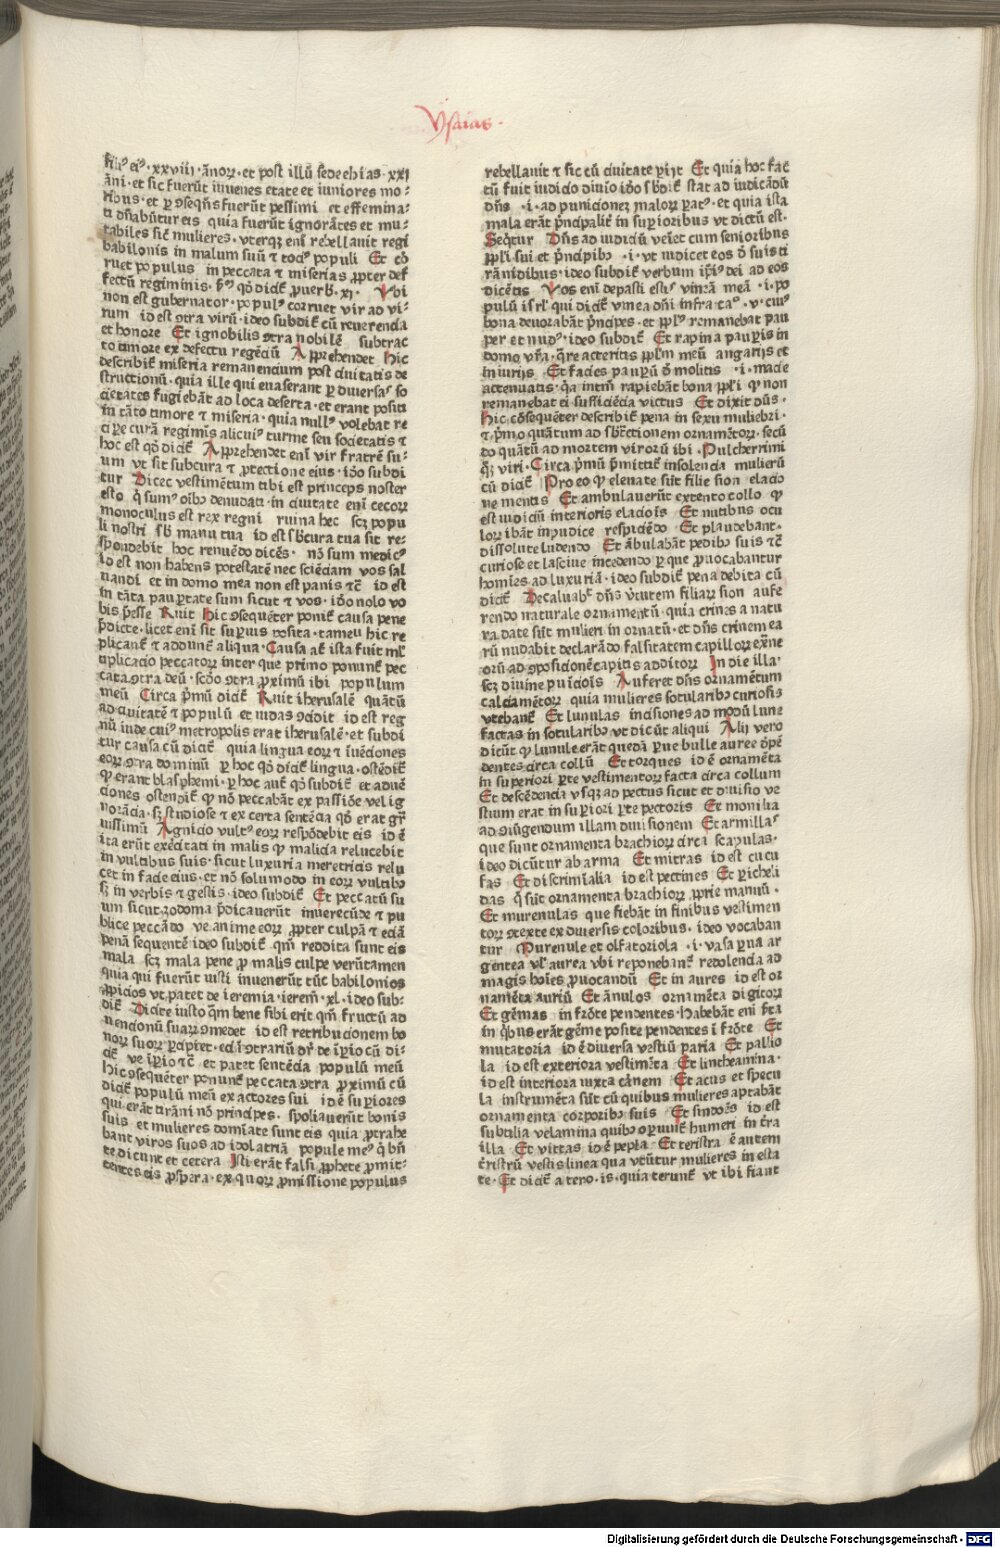 Ysaias.
filiꝰ eiꝰ·xxviii·ānoꝝ·et post illū sedechias·xxi
āni·et sic fuerūt iuvenes etate et iuniores mo⸗
ribus·et ꝑ ↄseqn̄s fuerūt pessimi et effemina⸗
ti dn̄abūtur eis quia fuerūt ignorātes et mu⸗
tabiles sic̄ mulieres·vterqꝫ eni rebellauit regi
babilonis in malum suū ⁊ tociꝰ populi Et cō
ruet populus in peccata ⁊ miserias ꝓpter def
fectū regiminis· qd̄ dicit̄ ꝓuerb·xi· Vbi
non est gubernator·popul̓ corruet vir ad vi⸗
rum id est ↄtra virū·ideo subdit̄ cū reuerencia
et honore Et ignobilis ↄtra nobilē subtrac
to timore ex defectu regēciū Apprehendet Hic
describit̄ miseria remanencium post ciuitatis de
structionū·quia ille qui euaserant ꝑ diuersaˢ so
cietates fugiebāt ad loca deserta·et erant positi
in tāto timore ⁊ miseria·quia nullꝰ volebat re
ciꝑe curā regimīs alicuiꝰ turme seu societatis ⁊
hoc est qd̄ dicit̄ Apprehendet eni vir fratrē su⸗
um vt sit sub cura ⁊ ꝓtectione eius·ido subdi
tur Dicec vestimētum tibi est princeps noster
esto ꝙ sumꝰ oībꝰ denudati·in ciuitate eni cecoꝝ
monoculus est rex regni ruina hec scꝫ popu
li nostri sb̄ manu tua id est sb̄cura tua sit re⸗
spondebit hoc renuēdo dicēs· nō sum medicꝰ
id est non habens potestatē nec sciēciam vos sal
uandi et in domo mea non est panis ⁊c̄ id est
in tāta pauꝑtate sum sicut ⁊ vos·ido nolo vo
bis p̄esse Ruit Hic ↄsequēter ponit̄ causa pene
p̄dicte·licet eni sit suꝑius posita·tameu hic re
plicant̄ ⁊ addunt̄ aliqua·Causa at̄ ista fuit ml̓
tiplicacio peccatoꝝ inter que primo ponunt̄ pec
cata ↄtra deū·scdo ↄtra ꝓximū ibi populum
meū Circa p̄mū dicit̄ Ruit iherusalē quātū
ad ciuitatē ⁊ populū et iudas ↄcidit id est reg
nū iude cuiꝰ metropolis erat iherusalē·et subdi
tur causa cū dicit̄ quia lingua eoꝝ ⁊ īuēciones
eoꝝ ↄtra dominū ꝑ hoc qd̄ dicit̄ lingua·ostēdit̄
ꝙ erant blasphemi·ꝑ hoc aut̄ qd̄ subdit̄ et aduē
ciones ostendit̄ ꝙ nō peccabāt ex passiōe vel ig
norācia·sꝫ studiose ⁊ ex certa sentēcia qd̄ erat gͣ
uissimū Agnicio vultꝰ eoꝝ respōdebit eis id ē
ita erūt excitati in malis ꝙ malicia relucebit
in vultibus suis·sicut luxuria meretricis relu
cet in facie eius·et nō solū modo in eoꝝ vultibꝰ
sꝫ in verbis ⁊ gestis·ideo subdit̄ Et peccatū su
um sicut zodoma p̄dicauerūt inuerecūde ⁊ pu
blice peccādo ve anime eoꝝ ꝓpter culpā ⁊ eciā
penā sequentē ideo subdit̄ qm̄ reddita sunt eis
mala scꝫ mala pene ꝓ malis culpe verūtamen
quia qui fuerūt iusti inuenerūt tūc babilonios
ꝓpicios vt patet de ieremia·ierem̄·xl·ideo sub⸗
dit̄ Dicite iusto qm̄ bene sibi erit qm̄ fructū ad
uencionū suaꝝ ↄmedet id est retribucionem bo
noꝝ suoꝝ ꝑcipiet·eciā ↄtrariū dr̄ de īpio cū di⸗
cit̄ ve īpio ⁊c̄ et patet sentēcia populū meū
hic ↄsequēter ponunt̄ peccata ↄtra ꝓximū cū
dicit̄ populū meū exactores sui id ē suꝑiores
qui erāt tirāni nō principes· spoliauerūt bonis
suis et mulieres domīate sunt eis quia ꝓtrahe
bant viros suos ad idolatriā popule meꝰ ꝗ bn̄
te dicunt et cetera Isti erāt falsi ꝓphete ꝓmit⸗
tentes eis ꝓspera·ex quoꝝ ꝓmissione populus
rebellauit ⁊ sic cū ciuitate ꝑijt Et quia hoc fac̄
tū fuit iudicio diuīo ido sb̄dit̄ stat ad iudicādū
dn̄s ·i·ad punicionez maloꝝ ꝑatꝰ·et quia ista
mala erāt p̄ncipalit̄ in suꝑioribus vt dictū est·
Seqt̄ur Dn̄s ad iudiciū veiet cum senioribus
ppl̓i sui et p̄ncipibꝰ ·i·vt iudicet eos d̄ suis ti
rānidibus·ideo subdit̄ verbum ip̄iˢ dei ad eos
dicētis Vos eni depasti estiˢ vineā meā ·i·po
pulū isrl̓ qui dicit̄ vinea dn̄i infra caᵒ·v·eiuˢ
bona deuorabāt p̄ncipes·et ppl̓s remanebat pau
per et nudꝰ·ideo subdit̄ Et rapina pauꝑis in
domo vr̄a·qͣre acteritis ppl̓m meū angarijs et
iniurijs Et facies pauꝑū d̄ molitis ·i·macie
actenuatis·qͣ intm̄ rapiebāt bona ppl̓i ꝙ non
remanebat ei sufficiēcia victus Et dixit dn̄s·
Hic cōsequēter describit̄ pena in sexu muliebri·
⁊ p̄mo quātum ad sb̄tͣctionem ornamētoꝝ·secū
do quātū ad mortem viroꝝ ibi·Pulcherrimi
qͦꝫ viri·Circa p̄mū p̄mittit̄ insolencia mulierū
cū dicit̄ Pro eo ꝙ eleuate sūt filie sion elacio
ne mentis Et ambulauerūt extento collo ꝙ
est iudiciū interioris elaciōis Et nutibus ocu
loꝝ ibāt inpudice respiciēdo Et plaudebant·
dissolute ludendo Et ābulabāt pedibꝰ suis ⁊c̄
curiose et lasciue incedendo ꝑ que ꝓuocabantur
homīes ad luxuriā·ideo subdit̄ pena debita cū
dicit̄ Decaluabᵗ dn̄s v̄ticem filiaꝝ sion aufe
rendo naturale ornamentū·quia crines a natu
ra date sūt mulieri in ornatū·et dn̄s crinem ea
rū nudabit declarādo falsitatem capilloꝝ ext̄ne
oꝝ ad ↄposicionē capitis additoꝝ In die illa·
scꝫ diuine puīciōis Auferet dn̄s ornamētum
calciamētoꝝ quia mulieres sotularibꝰ curiosis
vtebant̄ Et lunulas incisiones ad modū lune
factas in sotularibꝰ vt dicūt aliqui Alij vero
dicūt ꝙ lunule erāt quedā ꝑue bulle auree d̄pē
dentes circa collū Et torques id ē ornamēta
in superiori ꝑte vestimentoꝝ facta circa collum
Et descēdencia vsqꝫ ad pectus sicut et diuisio ve
stium erat in suꝑiori ꝑte pectoris Et monilia
ad ↄstringendum illam diuisionem Et armillaˢ
que sunt ornamenta brachioꝝ circa scapulas·
ideo dicūtur ab arma Et mitras id est cucu
fas Et discrimīalia id est pectines Et ꝑicheli
das q̄ sūt ornamenta brachioꝝ ꝓprie manuū·
Et murenulas que fiebāt in finibus vestimen
toꝝ ↄtexte ex diuersis coloribus·ideo vocaban
tur Murenule et olfatoriola ·i·vasa ꝑua ar
gentea vl̓ aurea vbi reponebant̄ redolencia ad
magis hoīes ꝓuocandū Et in aures id est or
namēta auriū Et ānulos ornamēta digitoꝝ
Et gēmas in frōte pendentes·habebāt eni fͤta
in qͥbus erāt gēme posite pendentes ī frōte Et
mutatoria id ē diuersa vestiū paria Et pallio
la id est exteriora vestimēta Et lintheamina·
id est interiora iuxta carnem Et acus et specu
la instrumēta sūt cū quibus mulieres aptabāt
ornamenta corporibꝰ suis Et sindoēs id est
subtilia velamina quibꝰ oꝑiuūt̄ humeri in t̄ra
illa Et vittas id ē pepla·Et teristra ē autem
t̄ristrū vestis linea qua vtūtur mulieres in esta
te·Et dicit̄ a tero·is·quia terunt̄ vt ibi fiant
Digitalisierung gefördert durch die Deutsche Forschungsgemeinschaft - DFG